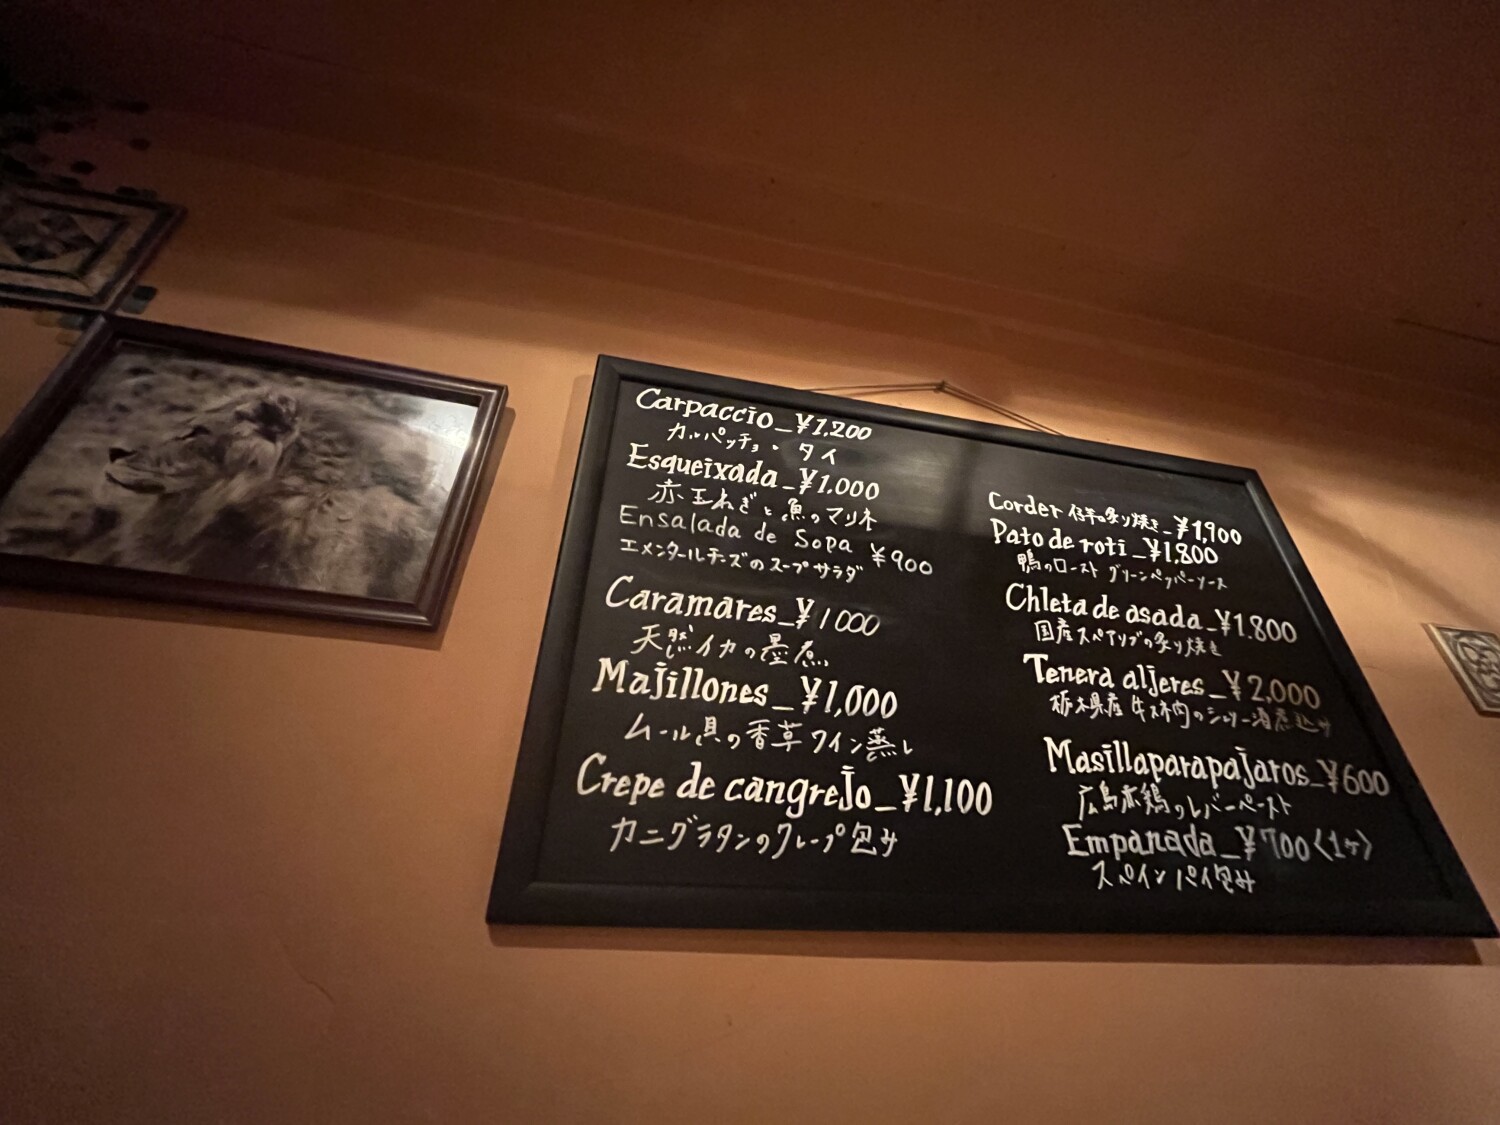 Carpaccio_¥1,200
カルパッチョ・タイ
Esqueixada_¥1,000
赤玉ねぎと魚のマリネ
Ensalada de Sopa ¥900
エメンタールチーズのスープサラダ
Caramares_¥1000
天然イカの墨煮
Majillones_¥1,000
ムール貝の香草ワイン蒸し
Crepe de cangrejo_¥1,100
カニグラタンのクレープ包み
Corder 仔羊の炙り焼き_¥1,900
Pato de roti_¥1,800
鴨のロースト グリーンペッパーソース
Chleta de asada_¥1.800
国産スペアリブの炙り焼き
Tenera aljeres_¥2,000
栃木県産 牛スネ肉のシェリー酒煮込み
Masillaparapajaros_¥600
広島赤鶏のレバーペースト
Empanada_¥700〈1ヶ〉
スペインパイ包み